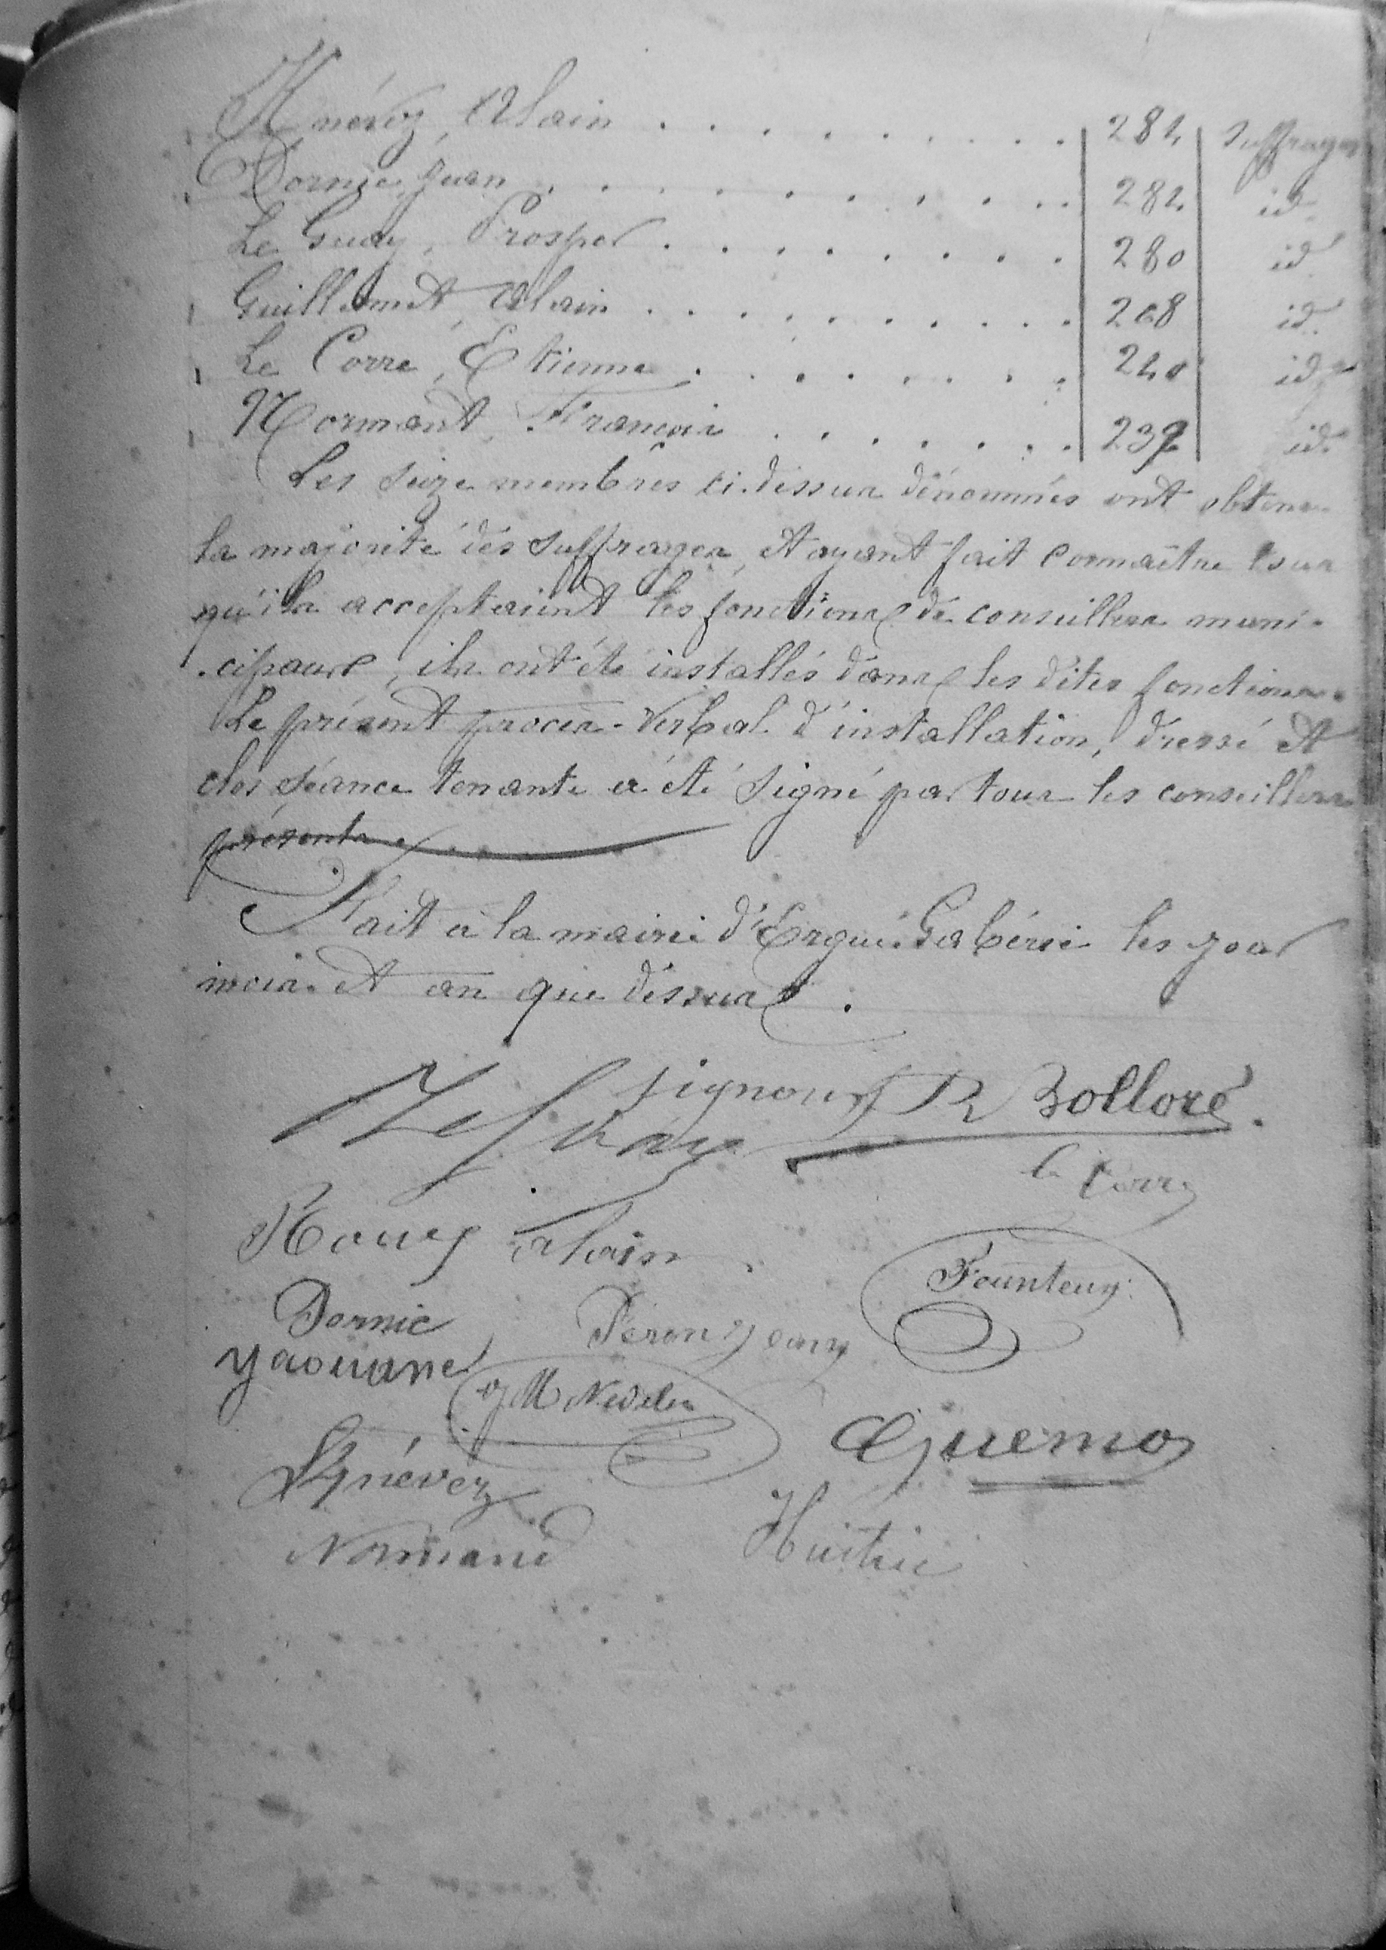 Knévez, Alain . . . . . . . . . 284 suffrages
Dornic, Jean . . . . . . . . . . 282 id.
Le Guay, Prosper . . . . . . . . 280 id.
Guillamet, Alain . . . . . . . . . . 268 id.
Le Corre, Etienne . . . . . . . . 240 id.
Normant, François . . . . . . . 232 id.
Les seize membres ci-dessus dénommés ont obtenu
la majorité des suffrages, et ayant fait connaître tous
qu'ils acceptaient les fonctions de conseillers muni-
-cipaux, ils ont été installés dans les dites fonctions.
Le présent procès-Verbal d'installation, dressé et
clos séance tenante a été signé par tous les conseillers
présents.
Fait à la mairie d'Ergué-Gabéric les jour
mois et an que dessus.
Signour R Bolloré
Le Guay
Le Corre
Rouey alain
Feunteuy
Dornic
Péron jean
yaouanc
J M Nédélec
Guemo
Knévez
Huitric
Normand